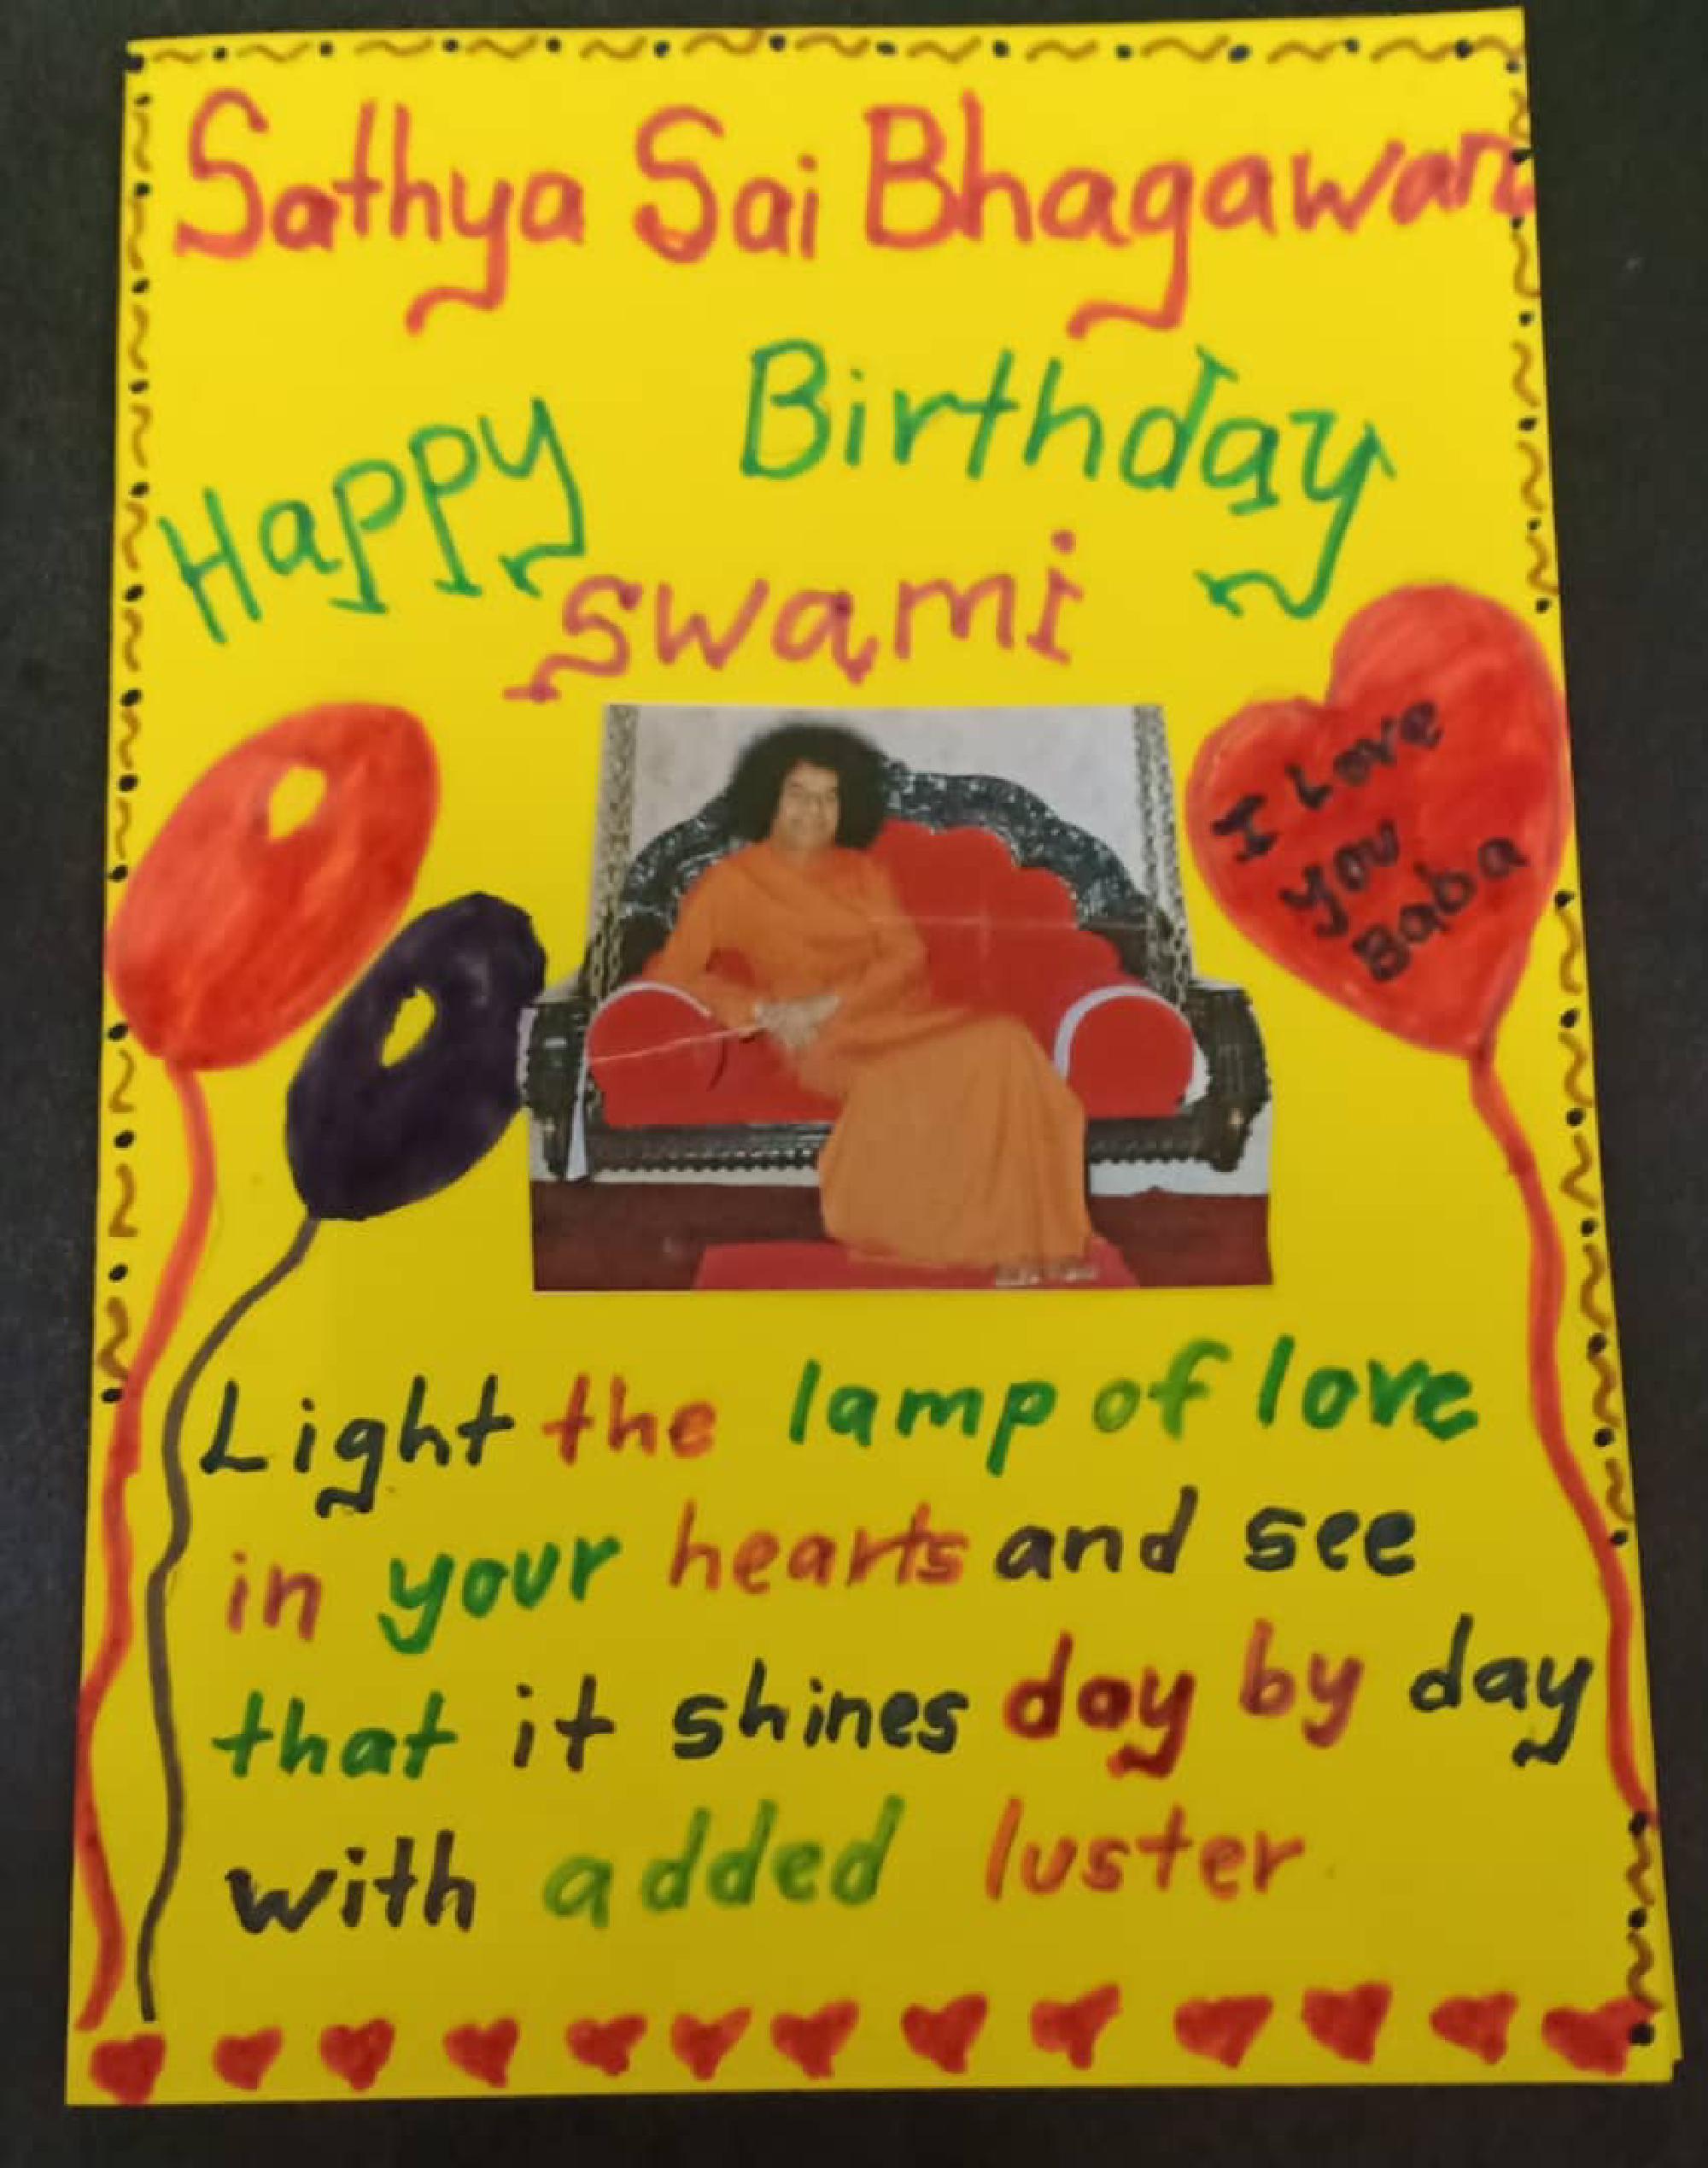 Sathya Sai Bhagawan
Happy Birthday
swami
I Love
you
Baba
Light the lamp of love
in your hearts and see
that it shines day by day
with added luster